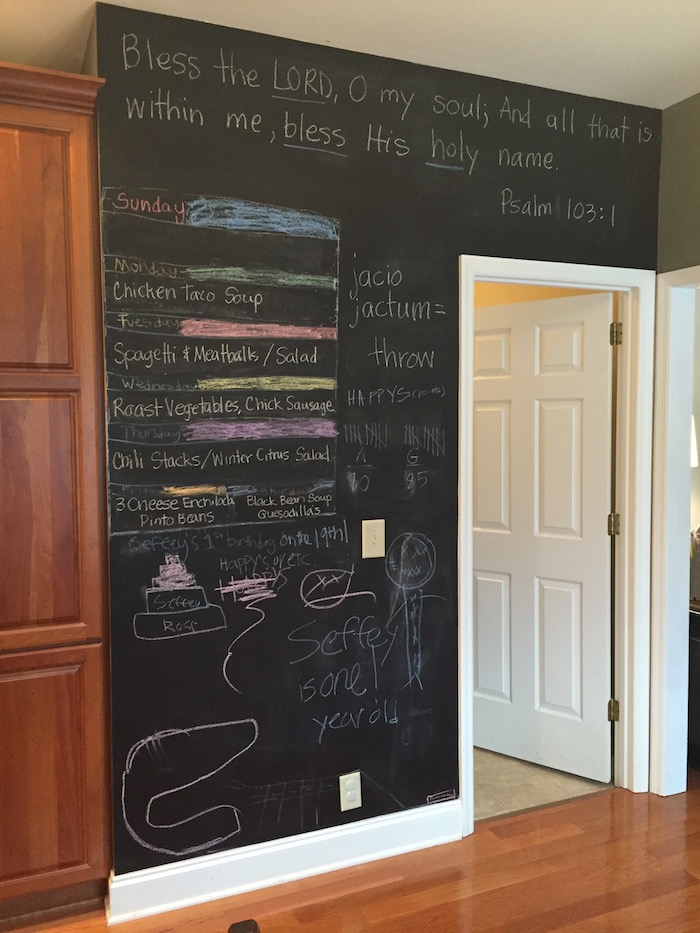 Bless the LORD, O my soul; And all that is
within me, bless His holy name.
Psalm 103:1
Sunday
Monday
Chicken Taco Soup
Tuesday
Spagetti & Meatballs / Salad
Wednesday
Roast Vegetables, Chick Sausage
Thursday
Chili Stacks/Winter Citrus Salad
3 Cheese Enchilada
Pinto Beans
Black Bean Soup
Quesadillas
jacio
jactum=
throw
HAPPYS (points)
G
Seffey's 1st birthday on the 19th!
Happy's etc
Seffey
Rose
Seffey
is one
year old